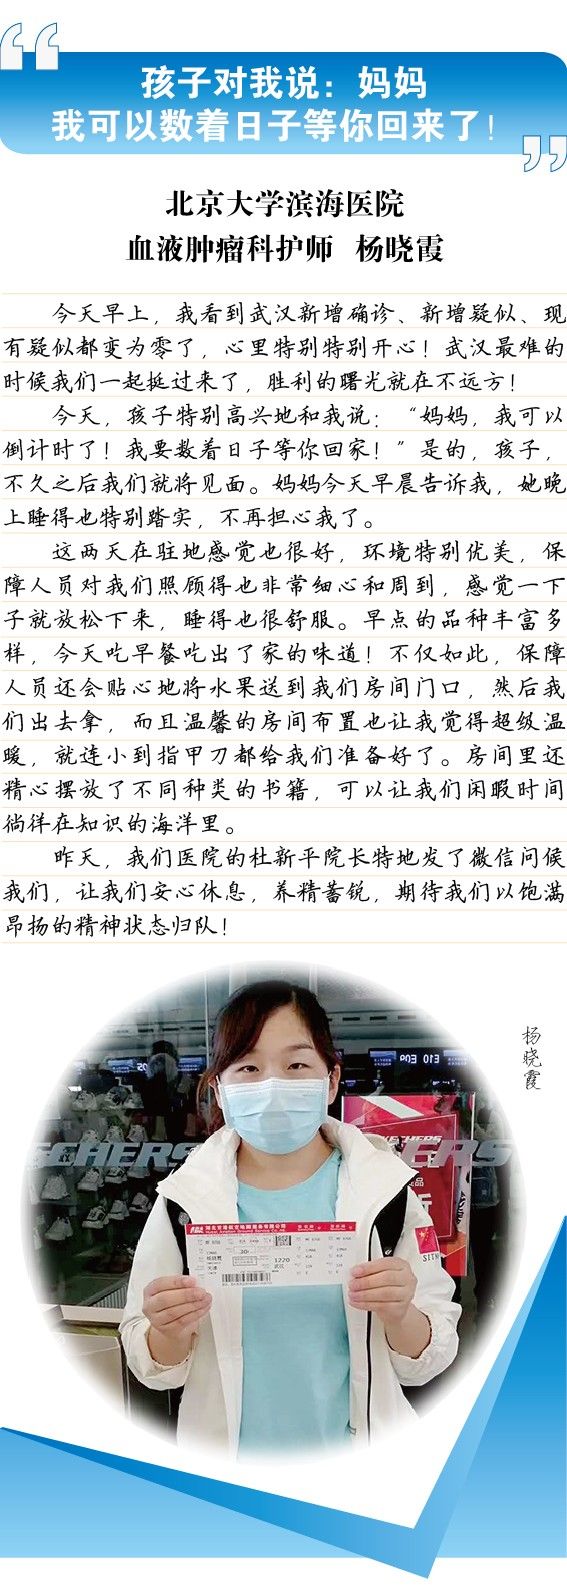 孩子对我说：妈妈
我可以数着日子等你回来了！
北京大学滨海医院
血液肿瘤科护师 杨晓霞
今天早上，我看到武汉新增确诊、新增疑似、现
有疑似都变为零了，心里特别特别开心！武汉最难的
时候我们一起挺过来了，胜利的曙光就在不远方！
今天，孩子特别高兴地和我说：“妈妈，我可以
倒计时了！我要数着日子等你回家！”是的，孩子，
不久之后我们就将见面。妈妈今天早晨告诉我，她晚
上睡得也特别踏实，不再担心我了。
这两天在驻地感觉也很好，环境特别优美，保
障人员对我们照顾得也非常细心和周到，感觉一下
子就放松下来，睡得也很舒服。早点的品种丰富多
样，今天吃早餐吃出了家的味道！不仅如此，保障
人员还会贴心地将水果送到我们房间门口，然后我
们出去拿，而且温馨的房间布置也让我觉得超级温
暖，就连小到指甲刀都给我们准备好了。房间里还
精心摆放了不同种类的书籍，可以让我们闲暇时间
徜徉在知识的海洋里。
昨天，我们医院的杜新平院长特地发了微信问候
我们，让我们安心休息，养精蓄锐，期待我们以饱满
昂扬的精神状态归队！
杨晓霞
E10 E09
CHERS
SKECHERS
品
折
湖北空港航空地面服务有限公司
1220
天津
武汉